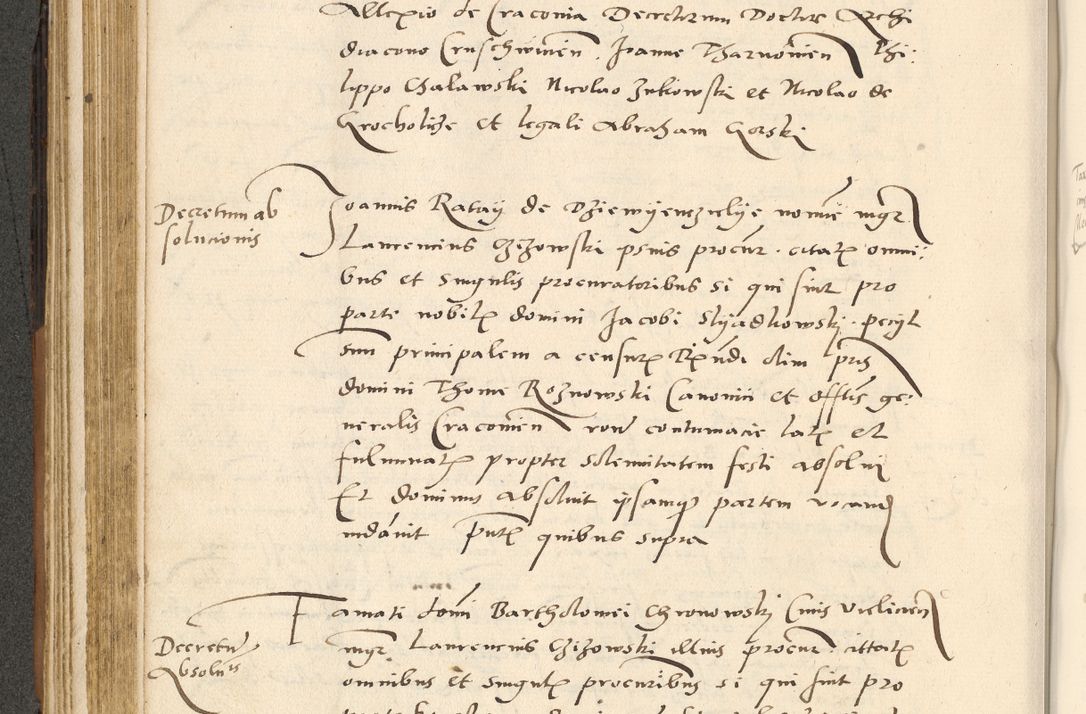 Allexio de Craconia Decretorum Doctore Archi
diacono Cruschwicien̄. Joanne Tharnowien̄ Phi:
lippo Chalawski Nicolao Zukowski et Nicolao de
Grocholicze et legali Abraham Gorski
Decretum ab
solucionis
Joannis Rataÿ de Dziewÿenczulÿe nomie mgr̄
Laurencius Czizowski psnis procur. citat̄ omni:
bus et singulis procuratoribus si qui sint pro
parte nobilꝭ domini Jacobi Slÿadkowski. pecÿt
suu principalem a censurꝭ Rx̄ndi olim pris
domini Thome Roznowski Canonici et offlīs ge:
neralis Cracoviēn rōne contumacie latꝭ et
fulminatꝭ propter solemnitatem festi absolui
Et dominus absoluit ipsamqꝫ partem vocand
mdauit Pntꝭ quibus supra
Decretū
Absolutis
Famati domī Bartholomei Chronowski Ciuis Vielicien̄
mgr̄ Laurencius Czizowski illius procur̄. cittatꝭ
omnibus et singulꝭ procurībus si qui sint pro